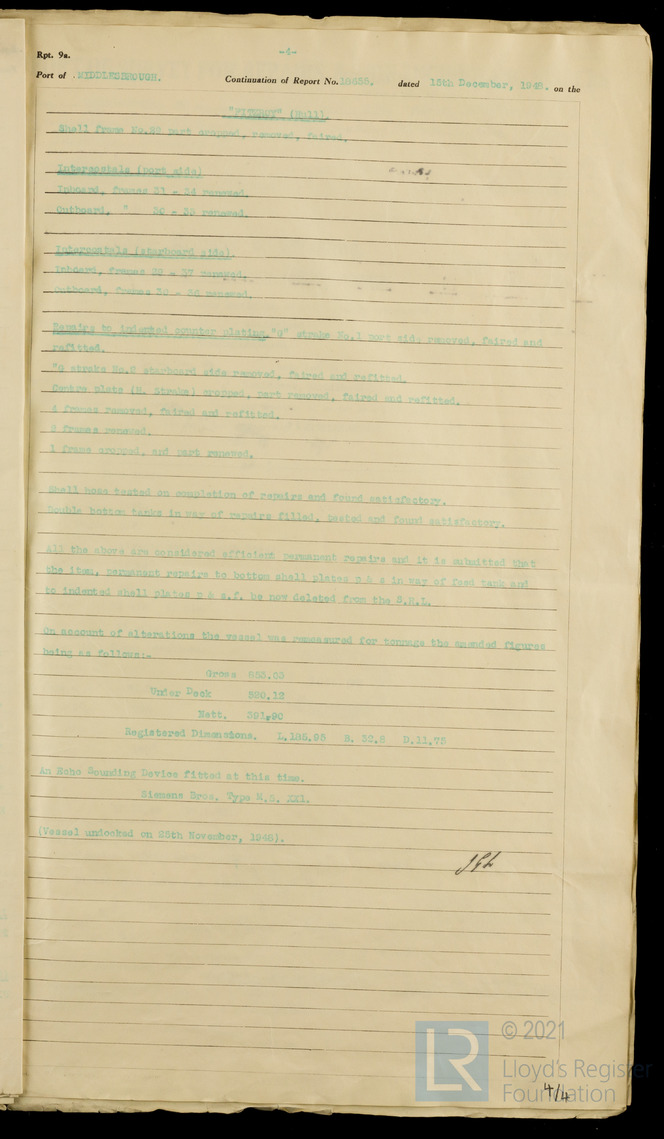 Rpt. 9a.
-4-
Port of MIDDLESBROUGH. Continuation of Report No. dated 15th December, 1948. on the
(Hull).
Shell frame No.22 part cropped, removed, faired.
Intercostals (port side)
Inboard, frames 31 - 34 renewed.
Outboard, " 30 - 35 renewed.
Intercostals (starboard side).
Inboard, frames 32 - 37 renewed.
Outboard, frames 30 - 36 renewed.
Repairs to indented counter plating. "G" strake No.1 port side removed, faired and
refitted.
"G strake No.2 starboard side removed, faired and refitted.
Centre plate (H. Strake) cropped, part removed, faired and refitted.
4 frames removed, faired and refitted.
2 frames renewed.
1 frame cropped, and part renewed.
Shell hose tested on completion of repairs and found satisfactory.
Double bottom tanks in way of repairs filled, tested and found satisfactory.
All the above are considered efficient permanent repairs and it is submitted that
the item, permanent repairs to bottom shell plates p & s in way of feed tank and
to indented shell plates p & s.f. be now deleted from the S.R.L.
On account of alterations the vessel was remeasured for tonnage the amended figures
being as follows:-
Gross
Under Deck 590.12
Nett. 391.90
Registered Dimensions. L.185.95 B. 32.8 D.11.75
An Echo Sounding Device fitted at this time.
Siemens Bros. Type M.S. XXI.
(Vessel undocked on 25th November, 1948).
4/4
LR
© 2021
Lloyd's Register
Foundation